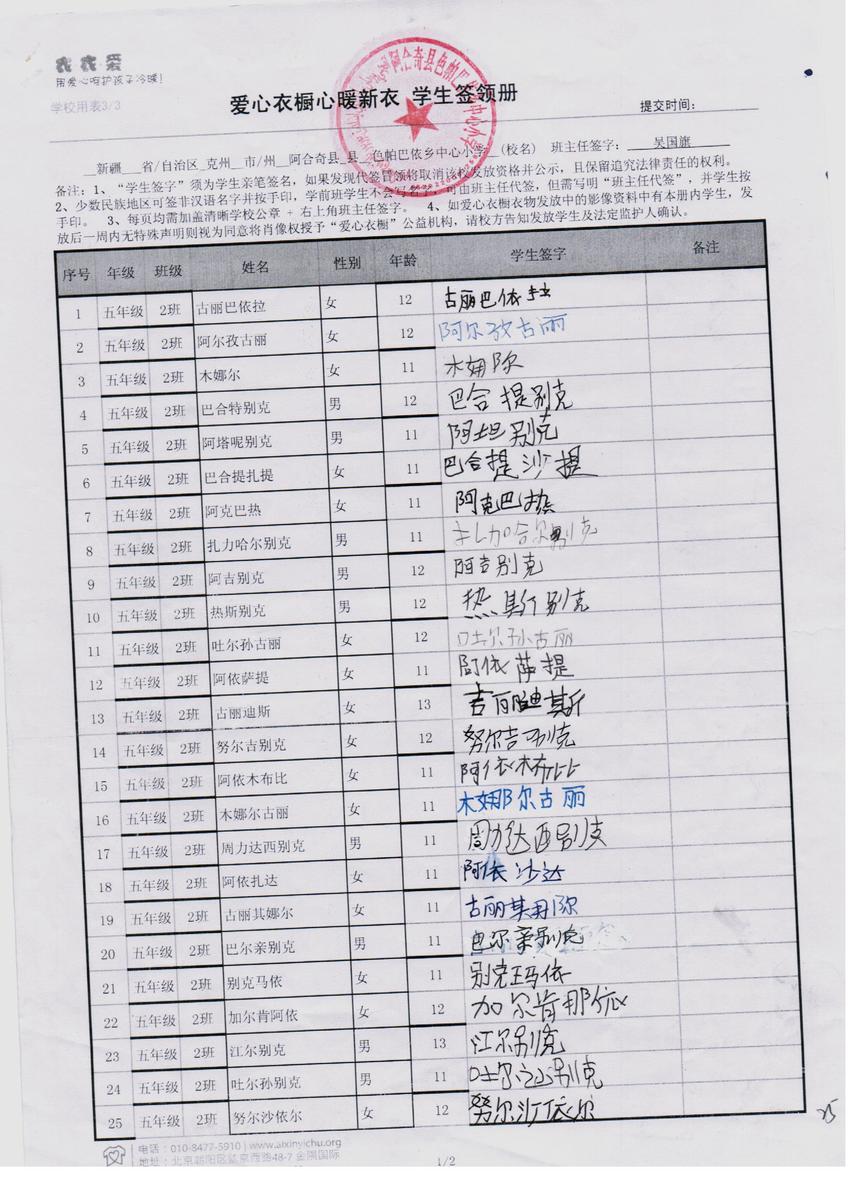 衣衣爱
用爱心呵护孩子冷暖!
学校用表3/3
爱心衣橱心暖新衣 学生签领册
提交时间:
新疆 省/自治区 克州 市/州 阿合奇县 县 色帕巴依乡中心小学 (校名) 班主任签字: 吴国旗
备注: 1、“学生签字”须为学生亲笔签名,如果发现代签冒领将取消该校发放资格并公示,且保留追究法律责任的权利。
2、少数民族地区可签非汉语名字并按手印,学前班学生不会写名字,可由班主任代签,但需写明“班主任代签”,并学生按
手印。 3、每页均需加盖清晰学校公章 + 右上角班主任签字。 4、如爱心衣橱衣物发放中的影像资料中有本册内学生,发
放后一周内无特殊声明则视为同意将肖像权授予“爱心衣橱”公益机构,请校方告知发放学生及法定监护人确认。
序号 年级 班级 姓名 性别 年龄 学生签字 备注
1 五年级 2班 古丽巴依拉 女 12 古丽巴依拉
2 五年级 2班 阿尔孜古丽 女 12 阿尔孜古丽
3 五年级 2班 木娜尔 女 11 木娜尔
4 五年级 2班 巴合特别克 男 12 巴合提别克
5 五年级 2班 阿塔呢别克 男 11 阿坦别克
6 五年级 2班 巴合提扎提 女 11 巴合提沙提
7 五年级 2班 阿克巴热 女 11 阿克巴热
8 五年级 2班 扎力哈尔别克 男 11 扎加哈尔别克
9 五年级 2班 阿吉别克 男 12 阿吉别克
10 五年级 2班 热斯别克 男 12 热斯别克
11 五年级 2班 吐尔孙古丽 女 12 吐尔孙古丽
12 五年级 2班 阿依萨提 女 11 阿依萨提
13 五年级 2班 古丽迪斯 女 13 古丽迪斯
14 五年级 2班 努尔吉别克 女 12 努尔吉别克
15 五年级 2班 阿依木布比 女 11 阿依木布比
16 五年级 2班 木娜尔古丽 女 11 木娜尔古丽
17 五年级 2班 周力达西别克 男 11 周力达西别克
18 五年级 2班 阿依扎达 女 11 阿依沙达
19 五年级 2班 古丽其娜尔 女 11 古丽其娜尔
20 五年级 2班 巴尔亲别克 男 11 巴尔亲别克
21 五年级 2班 别克马依 女 11 别克玛依
22 五年级 2班 加尔肯阿依 女 12 加尔肯那依
23 五年级 2班 江尔别克 男 13 江尔别克
24 五年级 2班 吐尔孙别克 男 11 吐尔 别克
25 五年级 2班 努尔沙依尔 女 12 努尔沙依尔
25
电话:010-8477-5910 | www.aixinyichu.org
地址:北京朝阳区 48-7 金隅国际
1/2